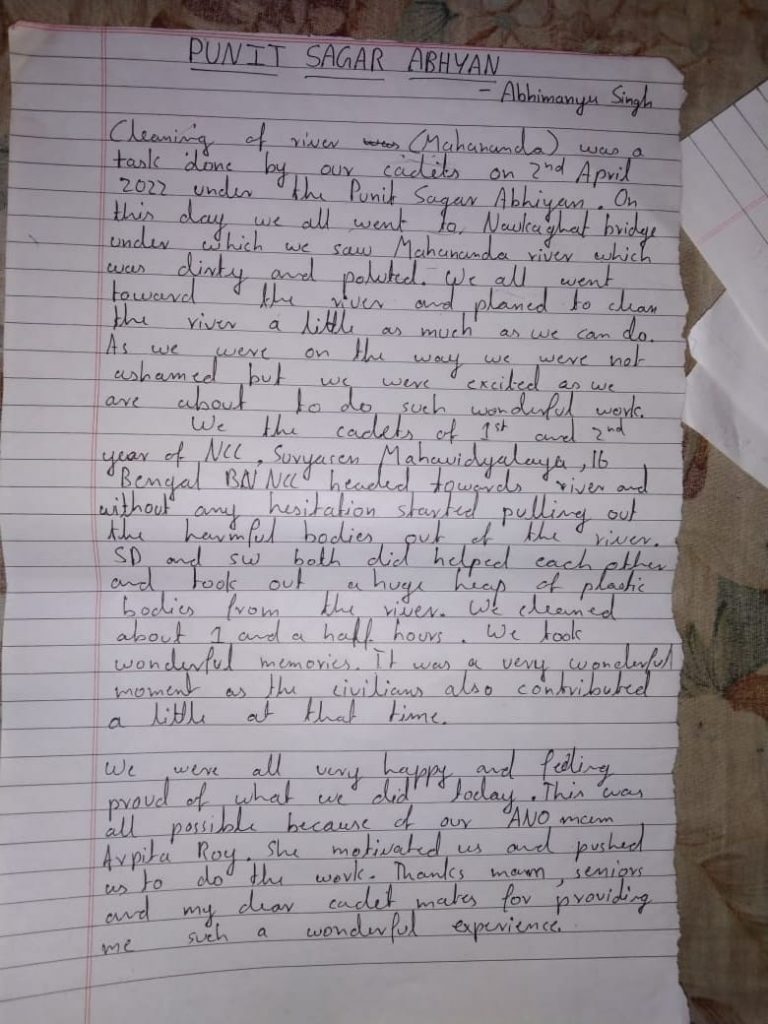 PUNIT SAGAR ABHYAN
- Abhimanyu Singh
Cleaning of river (Mahananda) was a
task done by our cadets on 2nd April
2022 under the Punit Sagar Abhiyan. On
this day we all went to, Naukaghat bridge
under which we saw Mahananda river which
was dirty and poluted. We all went
toward the river and planed to clean
the river a little as much as we can do.
As we were on the way we were not
ashamed but we were excited as we
are about to do such wonderful work.
We the cadets of 1st and 2nd
year of NCC, Suryasen Mahavidyalaya, 16
Bengal BN NCC headed towards river and
without any hesitation started pulling out
the harmful bodies out of the river.
SD and SW both did helped each other
and took out a huge heap of plastic
bodies from the river. We cleaned
about 1 and a half hours. We took
wonderful memories. It was a very wonderful
moment as the civilians also contributed
a little at that time.
We were all very happy and feeling
proud of what we did today. This was
all possible because of our ANO mam
Arpita Roy. She motivated us and pushed
us to do the work. Thanks mam, seniors
and my dear cadet mates for providing
me such a wonderful experience.